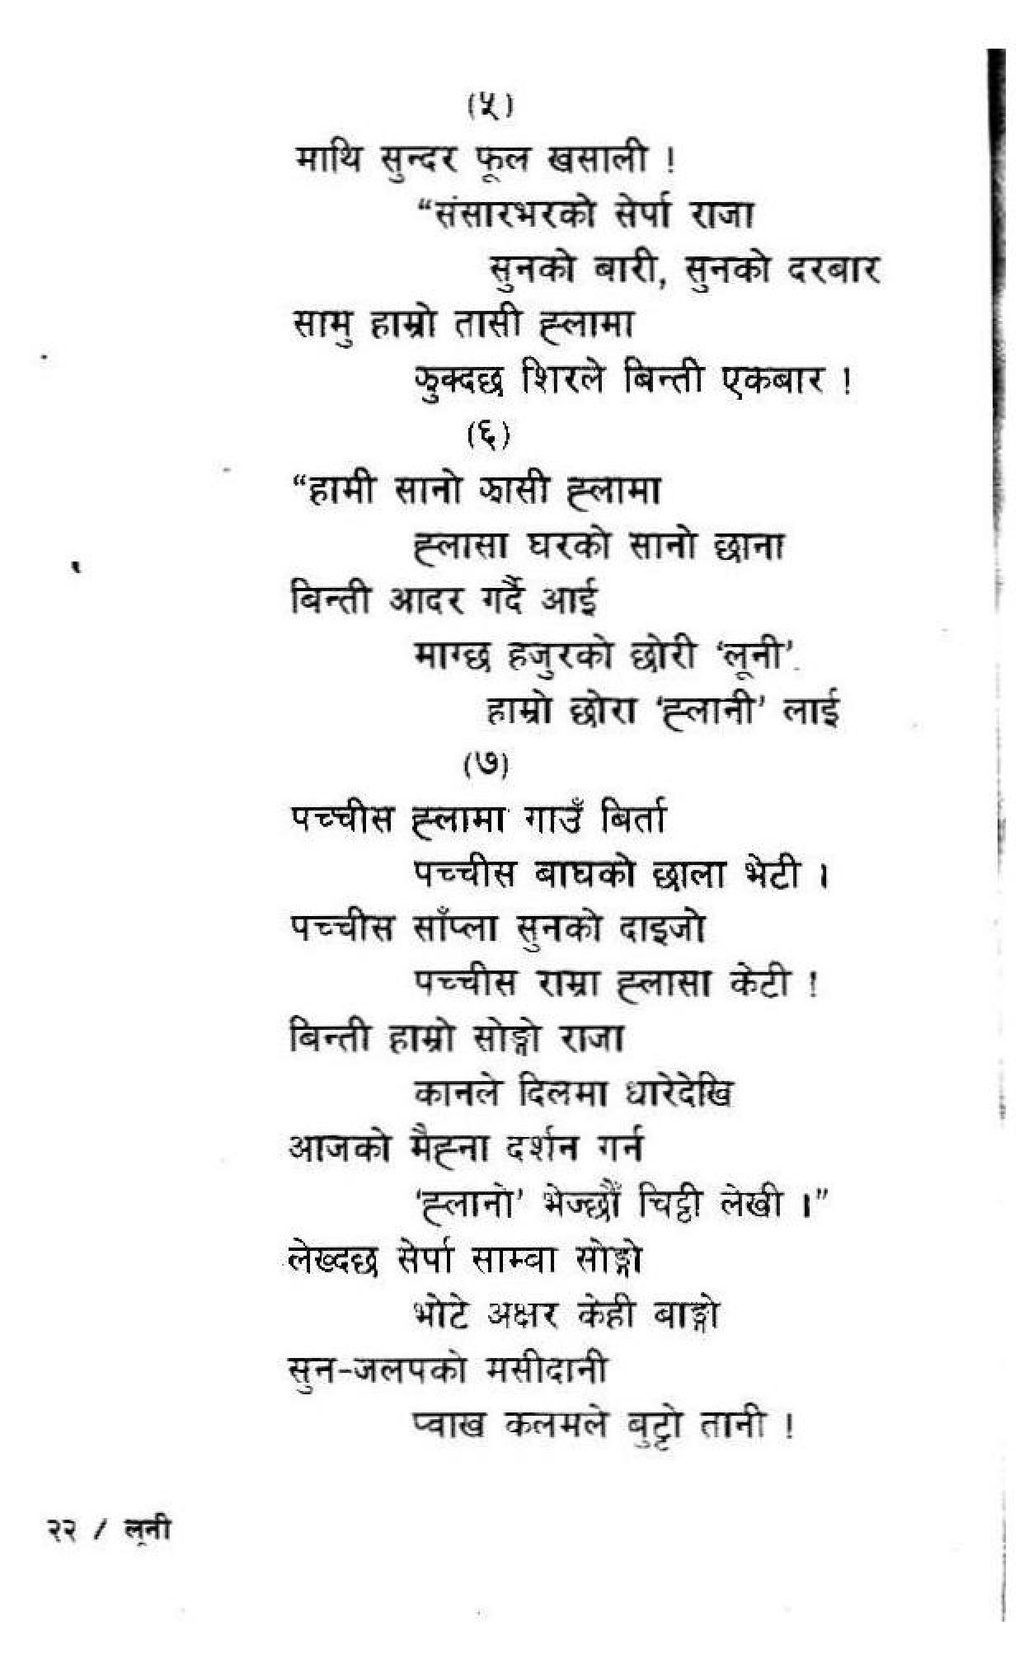 (५)
माथि सुन्दर फूल खसाली !
“संसारभरको सेर्पा राजा
सुनको बारी, सुनको दरबार
सामु हाम्रो तासी ह्लामा
झुक्दछ शिरले बिन्ती एकबार !
(६)
“हामी सानो झासी ह्लामा
ह्लासा घरको सानो छाना
बिन्ती आदर गर्दै आई
माग्छ हजुरको छोरी ‘लूनी’
हाम्रो छोरा ‘ह्लानी’ लाई
(७)
पच्चीस ह्लामा गाउँ बिर्ता
पच्चीस बाघको छाला भेटी ।
पच्चीस साँप्ला सुनको दाइजो
पच्चीस राम्रा ह्लासा केटी !
बिन्ती हाम्रो सोङ्गो राजा
कानले दिलमा धारेदेखि
आजको मैह्ना दर्शन गर्न
‘ह्लानो’ भेज्छौँ चिट्ठी लेखी ।”
लेख्दछ सेर्पा साम्वा सोङ्गो
भोटे अक्षर केही बाङ्गो
सुन-जलपको मसीदानी
प्वाख कलमले बुट्टो तानी !
२२ / लूनी